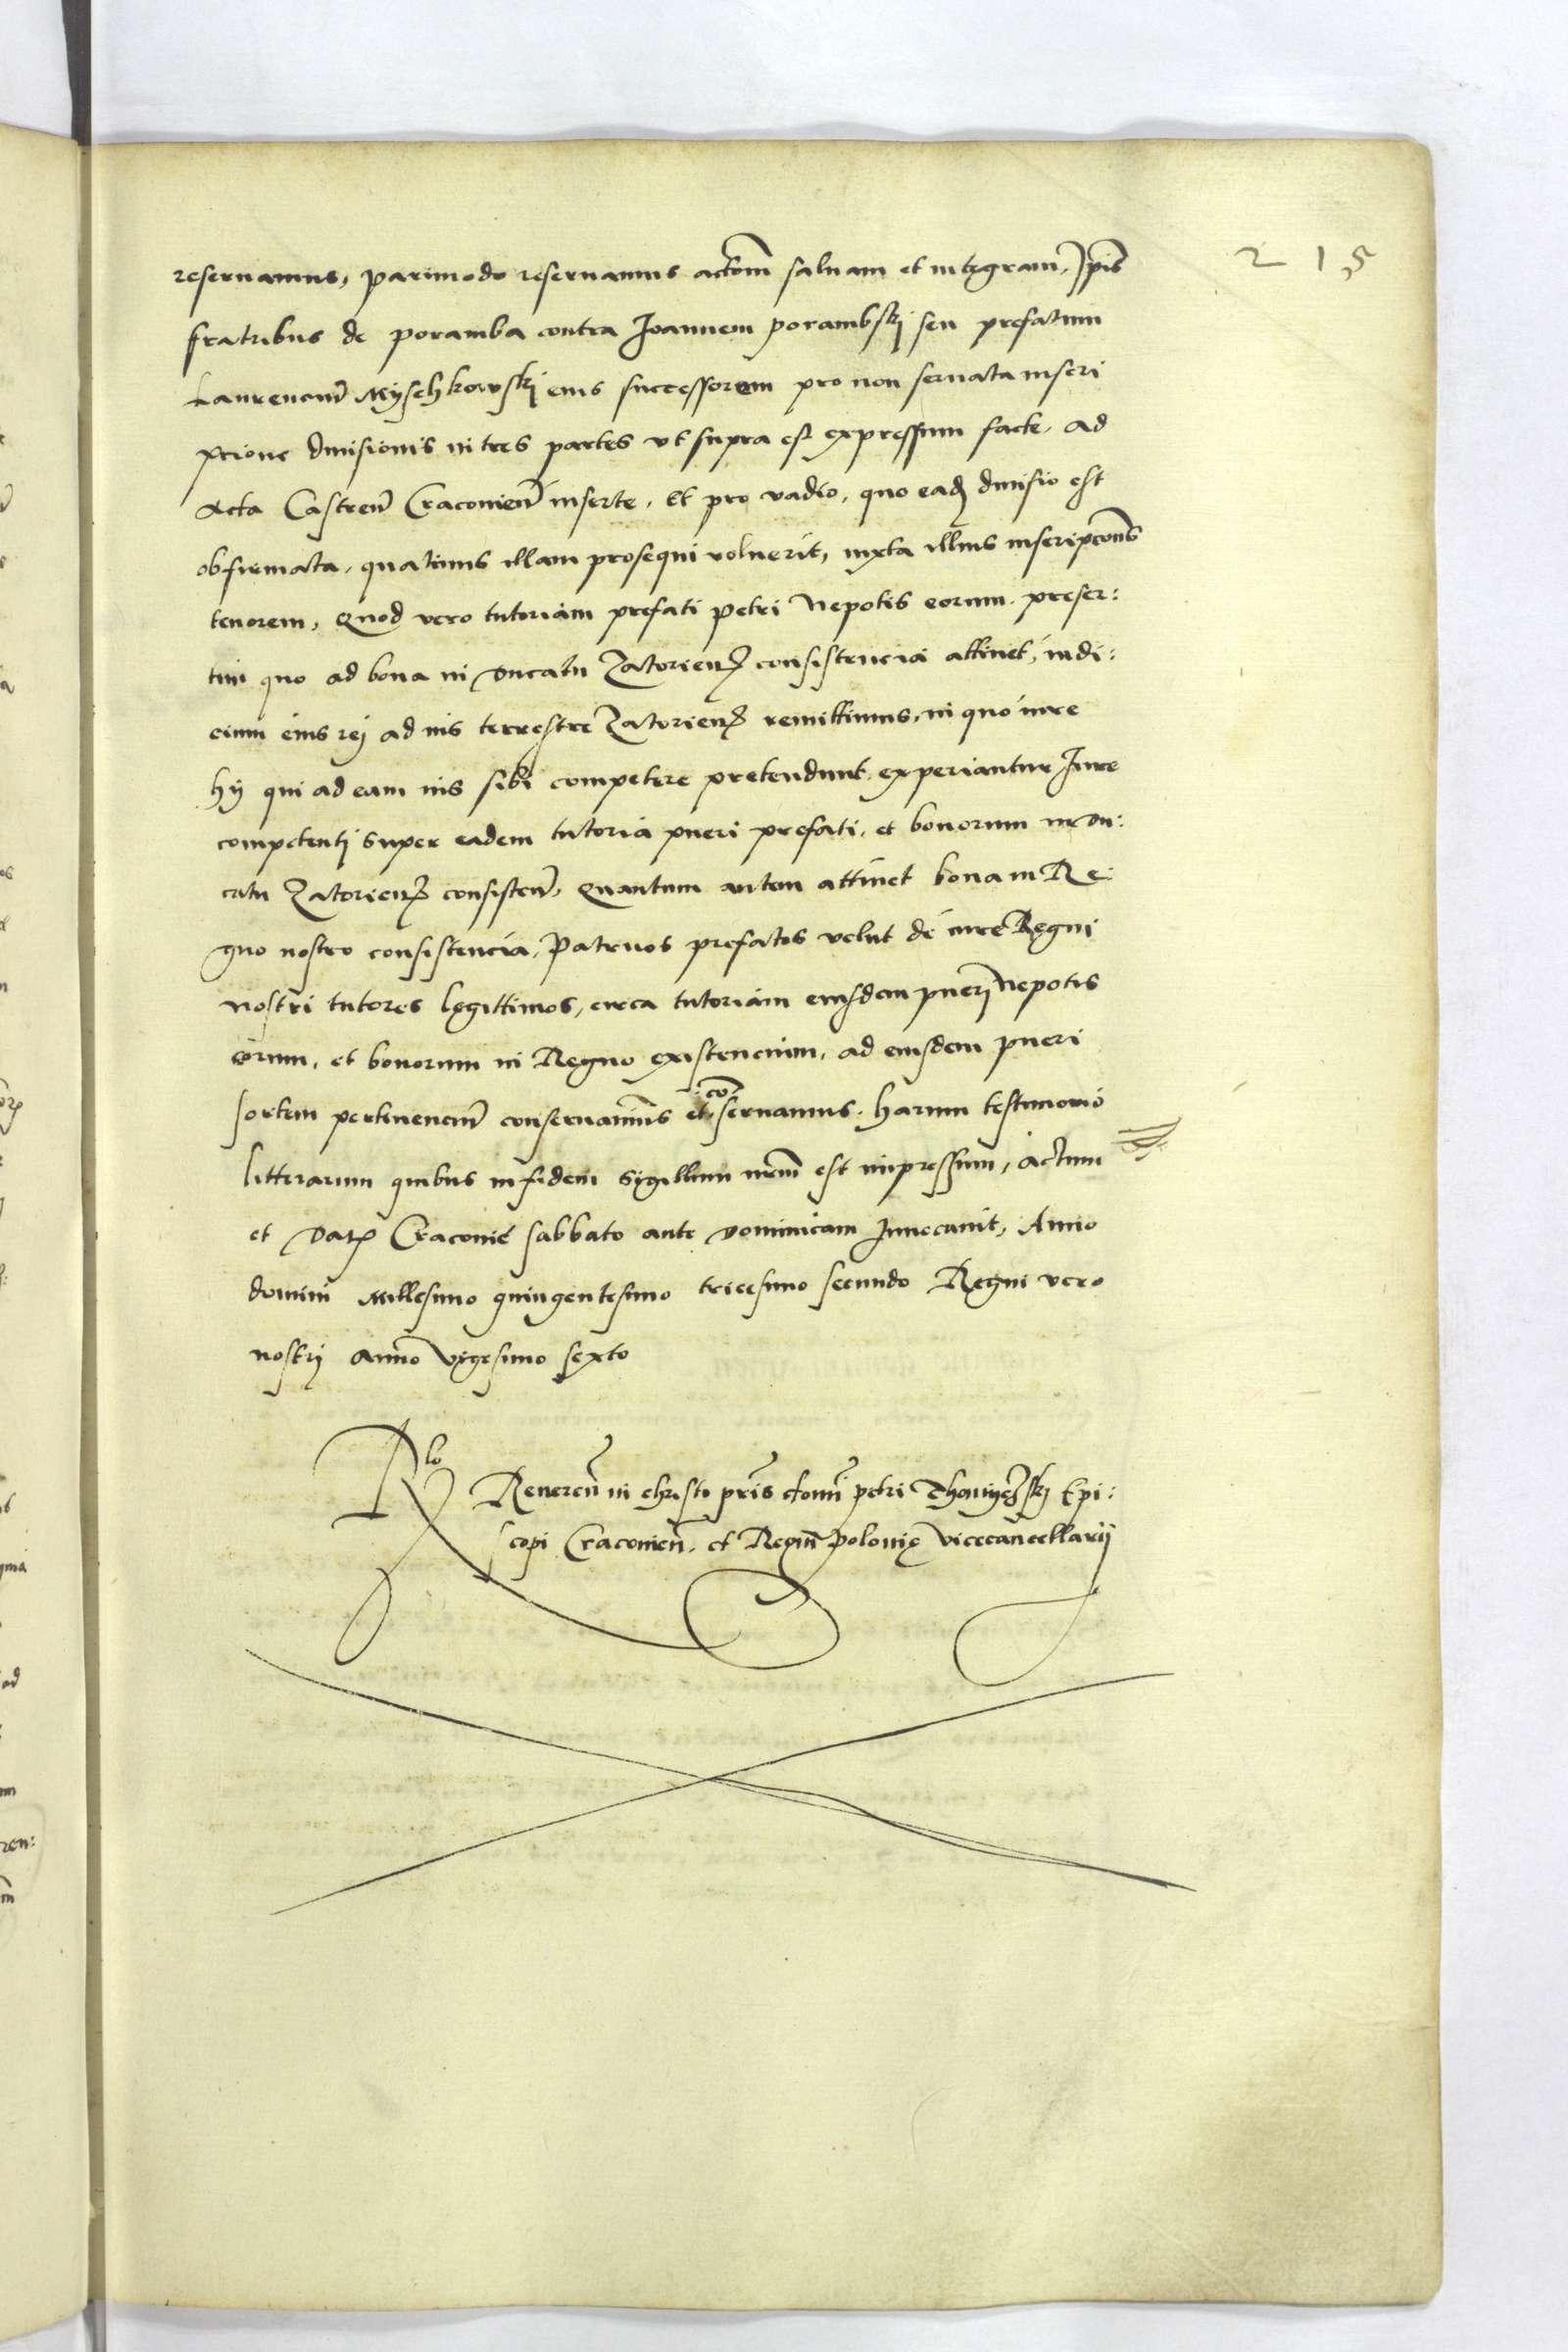 215
reseruamus, parimodo reseruamus actōem saluam et integram, Ip̄is
fratribus de poramba contra Ioannem porambskj seu prefatum
Laurenciū Myschkowskj eius successorem pro non seruata inscri
ptione diuisionis in tres partes vt supra est expressum facte. ad
Acta Castreñ Cracouieñ inserte. Et pro vadio, quo eadē diuisio est
obfirmata, quatinus illam prosequi voluerit, iuxta illius inscripcōnis
tenorem, Quod vero tutoriam prefati petri Nepotis eorum. preser:
tim quo ad bona in Ducatu Zatorieñ consistencia attinet, iudi:
cium eius rej ad ius terrestre Zatorieñ remittimus, in quo iure
hij qui ad eam ius sibi competere pretendunt experiantur Iure
competentj super eadem tutoria pueri prefati, et bonorum in du:
catu Zatorieñ consisteñ, Quantum autem attinet bona in Re:
gno nostro consistencia, Patruos prefatos velut de iure Regni
nostri tutores legittimos, circa tutoriam eiusdem puerj nepotis
eorum, et bonorum in Regno existencium, ad eiusdem pueri
sortem pertinenciū conseruauimus et conseruamus. harum testimonio
litterarum quibus in fidem sigillum nr̄m est impressum, Actum
et Dat Cracouie sabbato ante dominicam Inuocauit, Anno
domini Millesimo quingentesimo tricesimo secundo Regni vero
nostrj anno vigesimo sexto
Rlo Reuereñ in christo pr̄is domī petri Thomyczskj Epi:
scopi Cracouieñ. et Regni polonię vicecancellarij